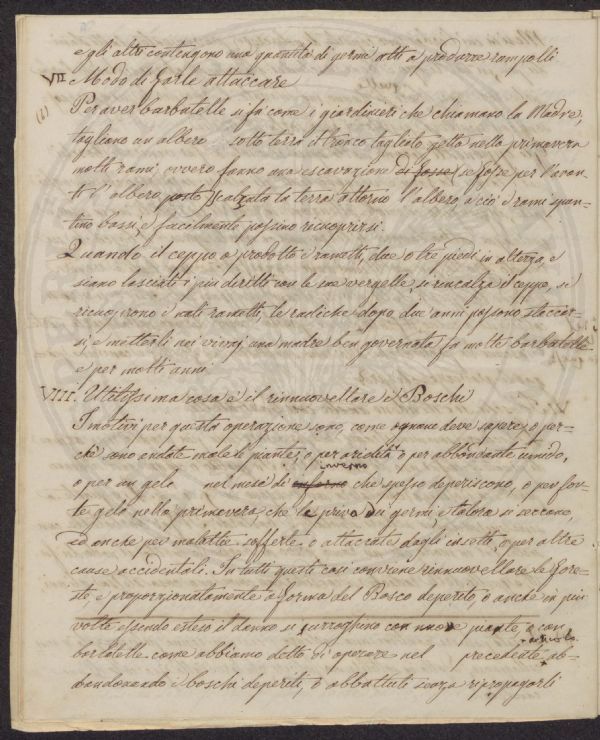 e gli altri contengono una quantità di germi atti a produrre rampolli
VII Modo di farle attaccare
Per aver barbatelle si fà come i giardinieri che chiamano la Madre,
tagliano un albero sotto terra il tronco tagliato getta nella primavera
molti rami, ovvero fanno una escavazione di fosse, se fosse per l'avan-
ti l'albero, posto scalzata la terra attorno l'albero, acciò i rami spun-
tino bassi, e facilmente possino ricuoprirsi.
Quando il ceppo a prodotto i rametti, due o tre piedi in altezza, e
siano lasciati i più diritti con le sue vergelle, si rincalza il ceppo, si
ricuoprono i nati rametti, le radiche dopo due anni possono staccar-
si, e metterli nei vivaj una madre ben governata fa molte barbatelle
e per molti anni
VIII. Utilissima cosa è il rinnuovellare i Boschi
I motivi per questa operazione sono, come ognuno deve sapere, o per-
chè sono andate male le piante, o per aridità o per abbondante umido,
o per un gelo nel mese di inverno che spesso deperiscono, o per for-
te gelo nella primavera che le priva di germi e talora si seccano
ed anche per malattie sofferte o attaccate dagli insetti, o per altre
cause accidentali. In tutti questi casi conviene rinnuovellare le fore-
ste e proporzionatamente a forma del Bosco deperito, o anche in più
volte essendo esteso il danno si surroghino con nuove piante, o con
barbatelle come abbiamo detto di operare nel precedente articolo ab-
bandonando i boschi deperiti, o abbattuti senza ripropagarli